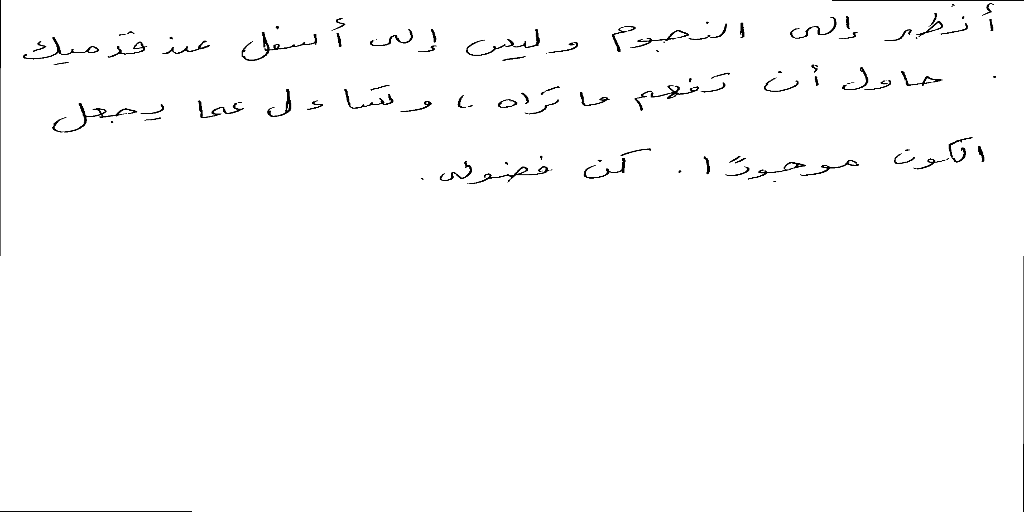 أنظر إلى النجوم وليس إلى أسفل عند قدميك
. حاول أن تفهم ما تراه ، وتساءل عما يجعل
الكون موجودًا. كن فضولى.